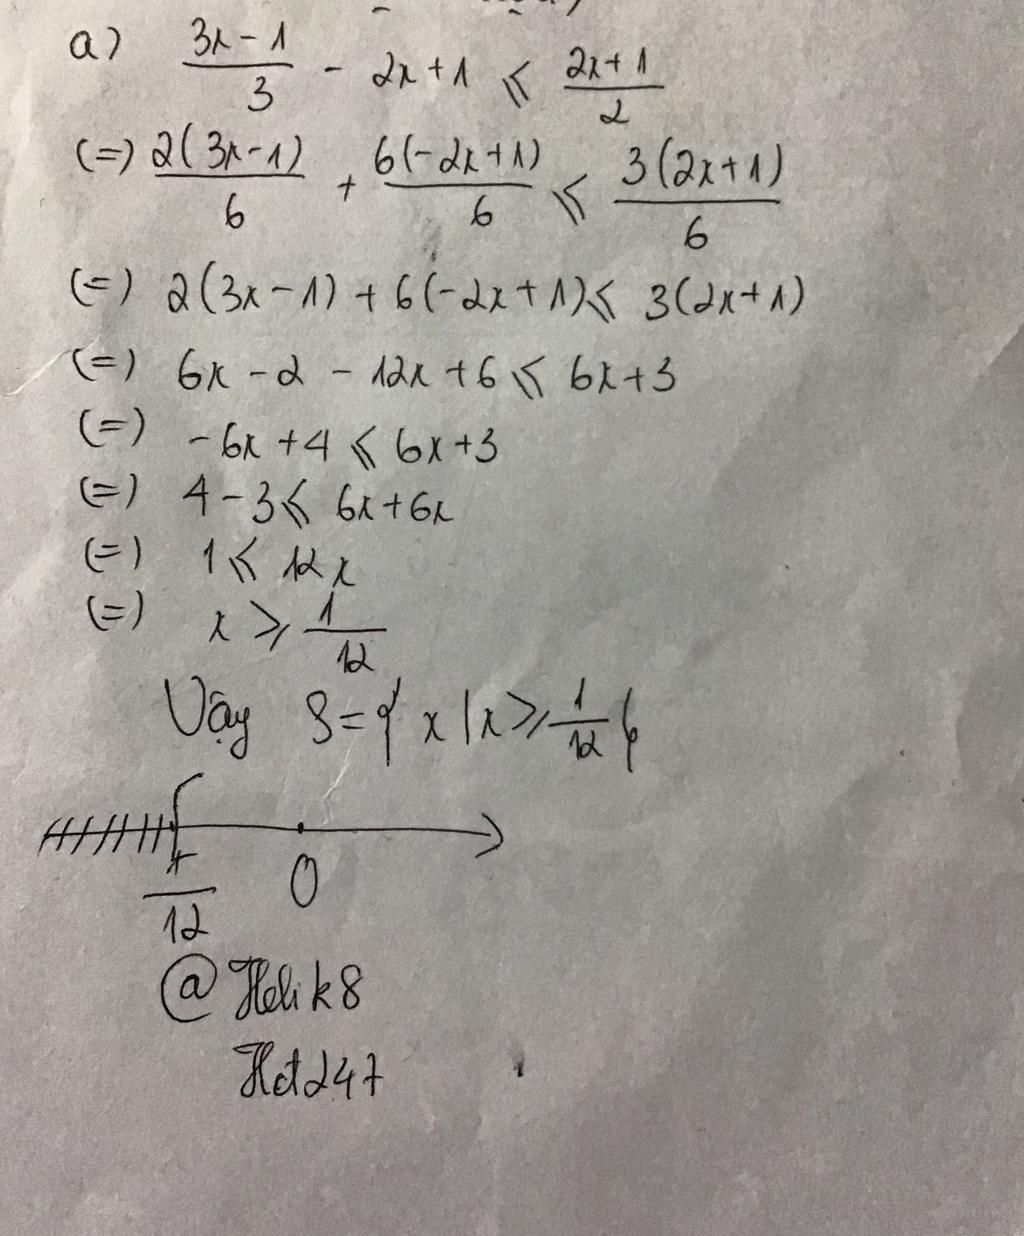 a) (3x-1)/3 - 2x+1 ≤ (2x+1)/2
(=) 2(3x-1)/6 + 6(-2x+1)/6 ≤ 3(2x+1)/6
(=) 2(3x-1) + 6(-2x+1) ≤ 3(2x+1)
(=) 6x - 2 - 12x + 6 ≤ 6x+3
(=) -6x + 4 ≤ 6x+3
(=) 4-3 ≤ 6x+6x
(=) 1 ≤ 12x
(=) x ≥ 1/12
Vậy S={x|x≥1/12}
12 0
@ Helik8
Hd247